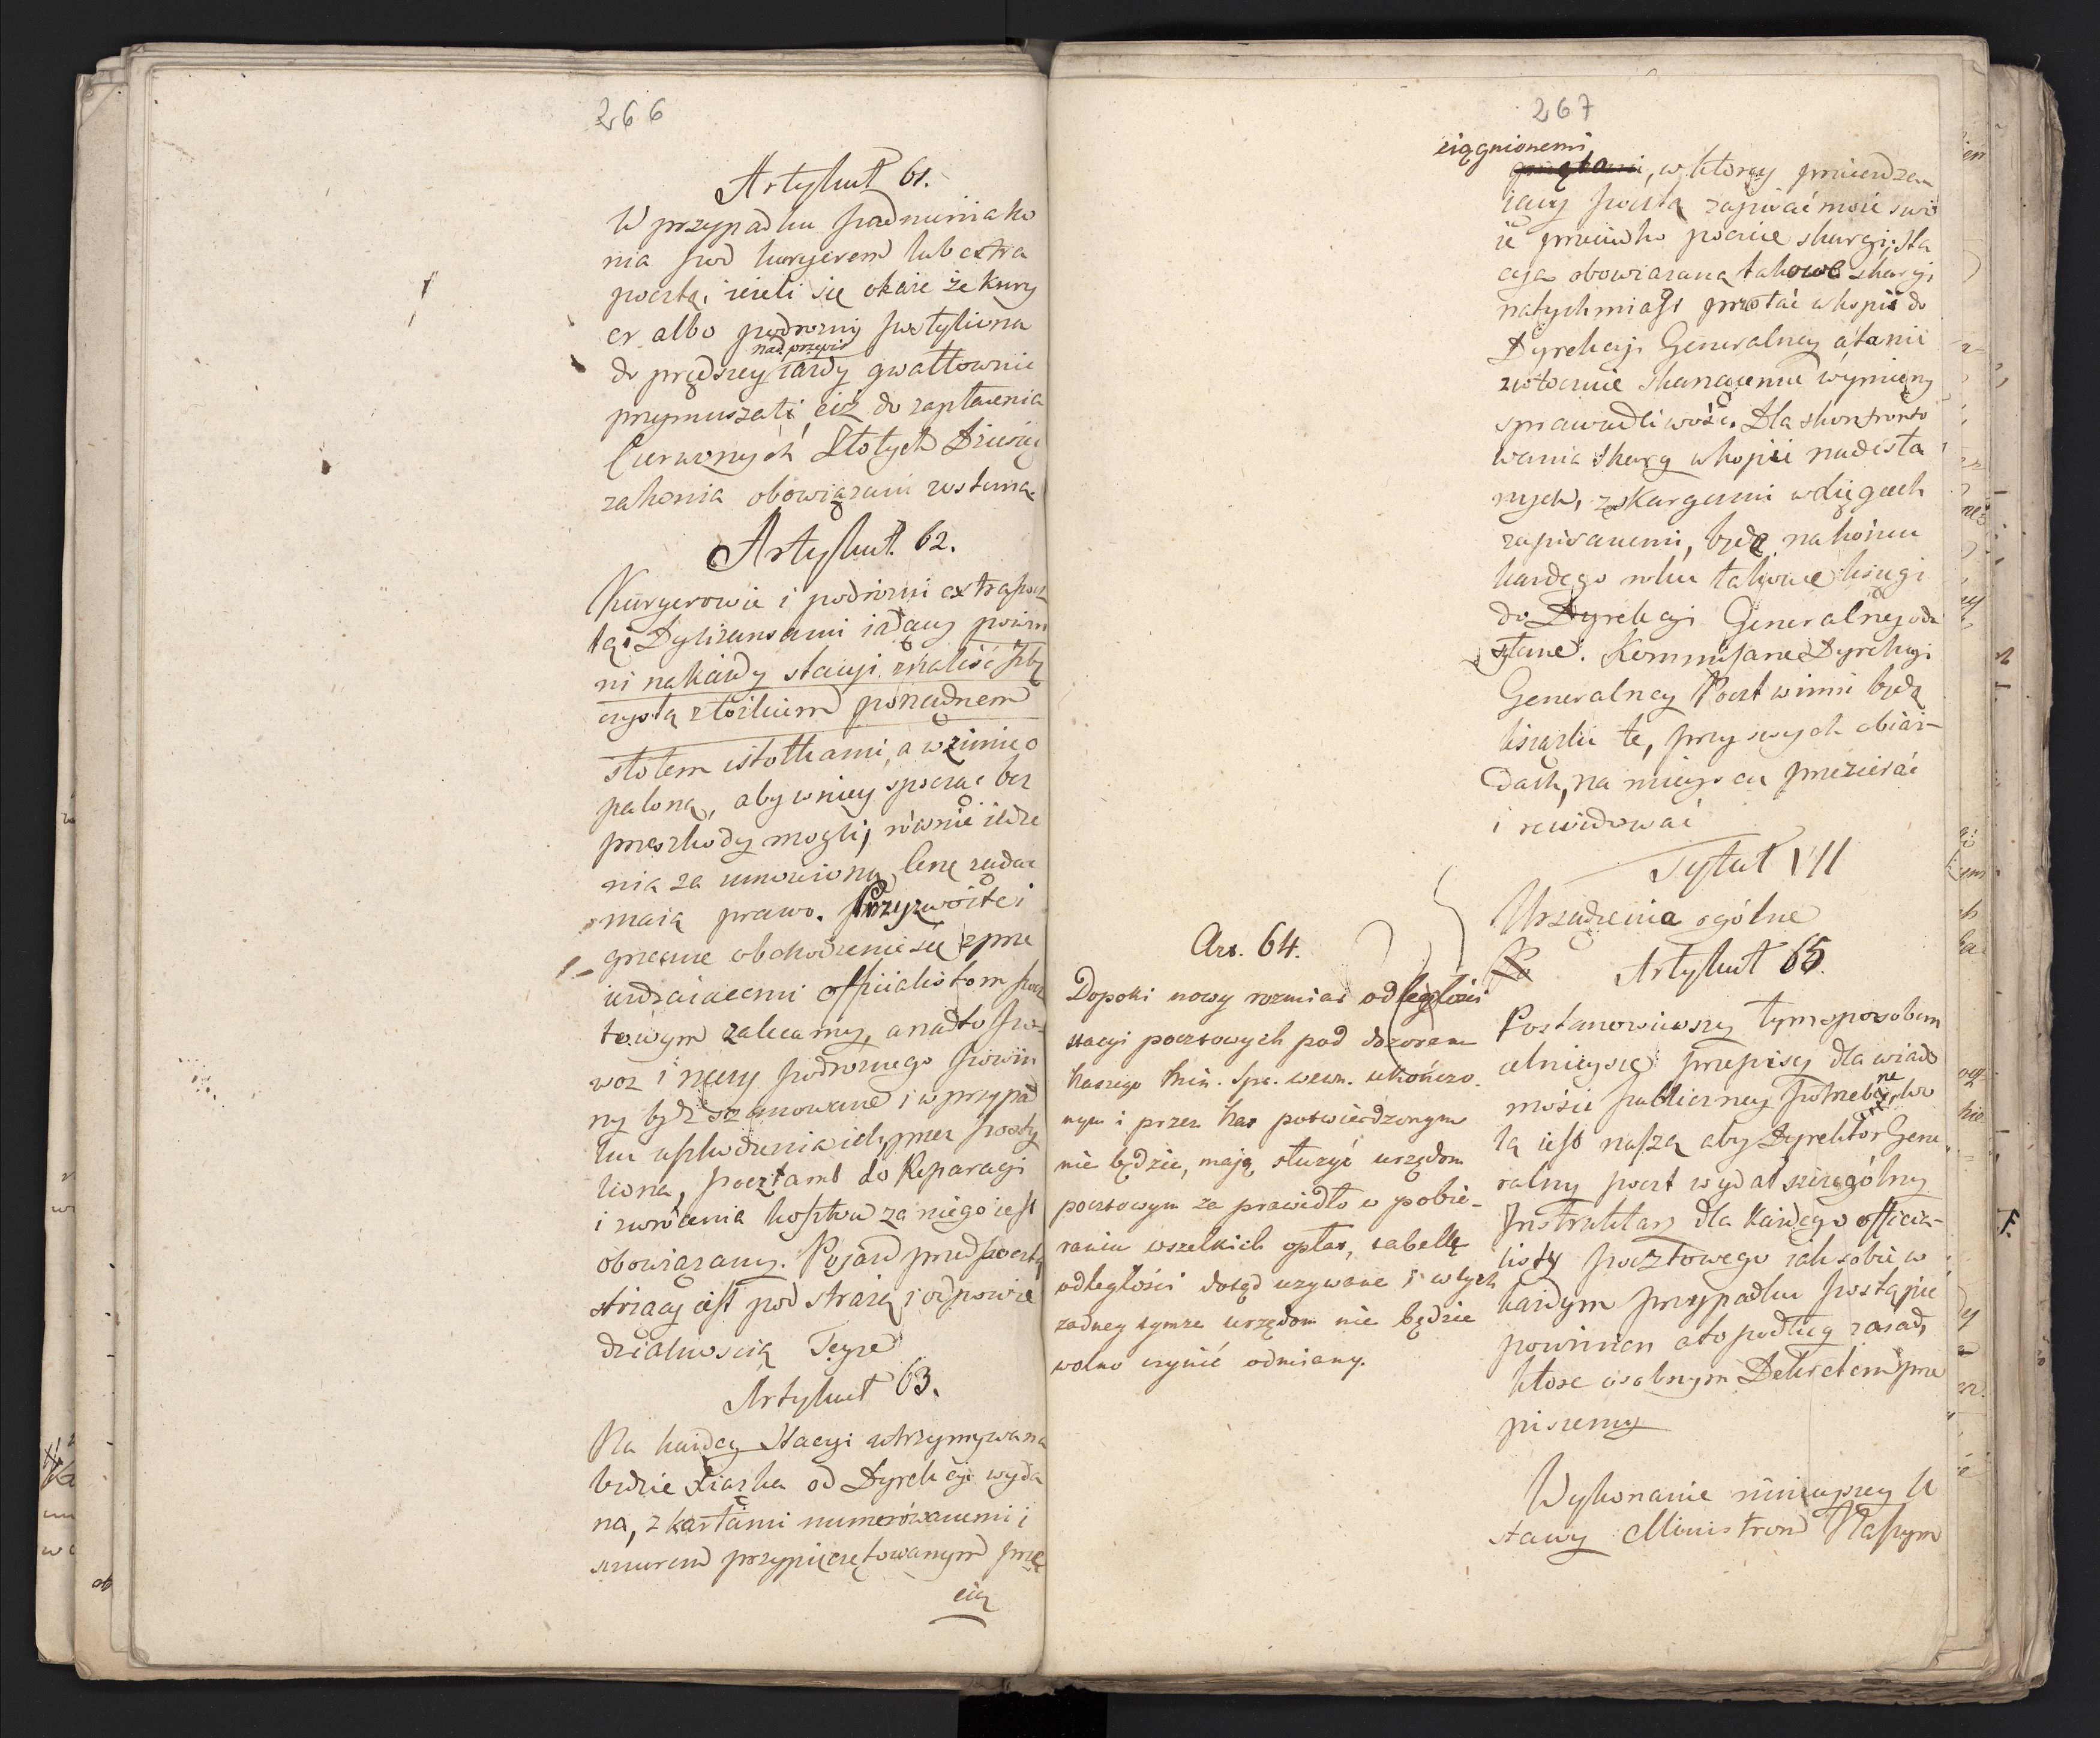 266
Artykuł 61.
W przypadku padnienia ko
nia pod kuryerem lub extra
pocztą, ieżeli się okaże że kury
er albo podrozny postyliona
nad przepis
do prędszey iazdy gwałtownie
przymuszali, ciż do zapłacenia
Czerwonych Złotych Dziesięć
za konia obowiązani zostaną.
Artykuł. 62.
Kuryerowie i podrozni extrapocz
tą i Dyliżansami iadący powin
ni na każdy stacyi znaleść izbę
czystą z łóżkiem porządnem
stołem i stołkami, a w zimie o
paloną, aby w niey spocząć bez
przeszkody mogli, równie iedze
nia za umowioną Cenę żądać
maią prawo. Przyzwoite i
grzeczne obchodzenie się z prze
ieżdzaiącemi officialistom pocz
towym zalecamy, a nadto po
woz i rzeczy podroznego powin
ny bydź szanowane i w przypad
ku uszkodzenia ich przez posty
liona, pocztamt do Reparacyi
i zwrócenia kosztów za niego iest
obowiązany. Pojazd przed pocztą
stoiący iest pod strażą i odpowie
dzialnością Teyże
Artykuł 63.
Na każdey Stacyi utrzymywana
będzie xiążka od Dyrekcyi wyda
na, z kartami numerowanemi i
sznurem przypieczętowanym prze
cią
267
ciągnionemi
, w ktorey przeieżdża
iący pocztą zapisać może swo
ie przeciwko poczcie skargi; Sta
cya obowiązana takowe skargi
natychmiast przesłać w kopii do
Dyrekcyi Generalney a ta nie
zwłocznie skarżącemu wymierzy
sprawiedliwość. Dla skonfronto
wania skarg w kopii nadesła
nych, z skargami w xięgach
zapisanemi, będą na końcu
każdego roku takowe księgi
do Dyrekcyi Generalney ode
słane. Kommissarze Dyrekcyi
Generalney Poczt winni będą
książki te, przy swych obiaz-
dach, na mieyscu przezierać
i rewidować
Tytuł VII
Urządzenia ogólne
Art. 64.
Dopoki nowy rozmiar odległości
stacyi pocztowych pod dozorem
Naszego Min. Spr. wewn. ukończo-
nym i przez Nas potwierdzonym
nie będzie, mają służyć urzędom
pocztowym za prawidło w pobie-
raniu wszelkich opłat, tabelle
odległości dotąd używane i w tych
żadney tymże urzędom nie będzie
wolno czynić odmiany.
Artykuł 65.
Postanowiwszy tym sposobem
celnieysze przepisy dla wiado
mości publiczney potrzebne, wo
lą iest naszą aby Dyrektor Gene
ralny poczt wydał szczególny
Instruktarz dla każdego officia-
listy pocztowego iak sobie w
każdym przypadku postąpić
powinien a to podług zasad,
które osobnym Dekretem prze
piszemy
Wykonanie ninieyszey U
stawy Ministrom Naszym